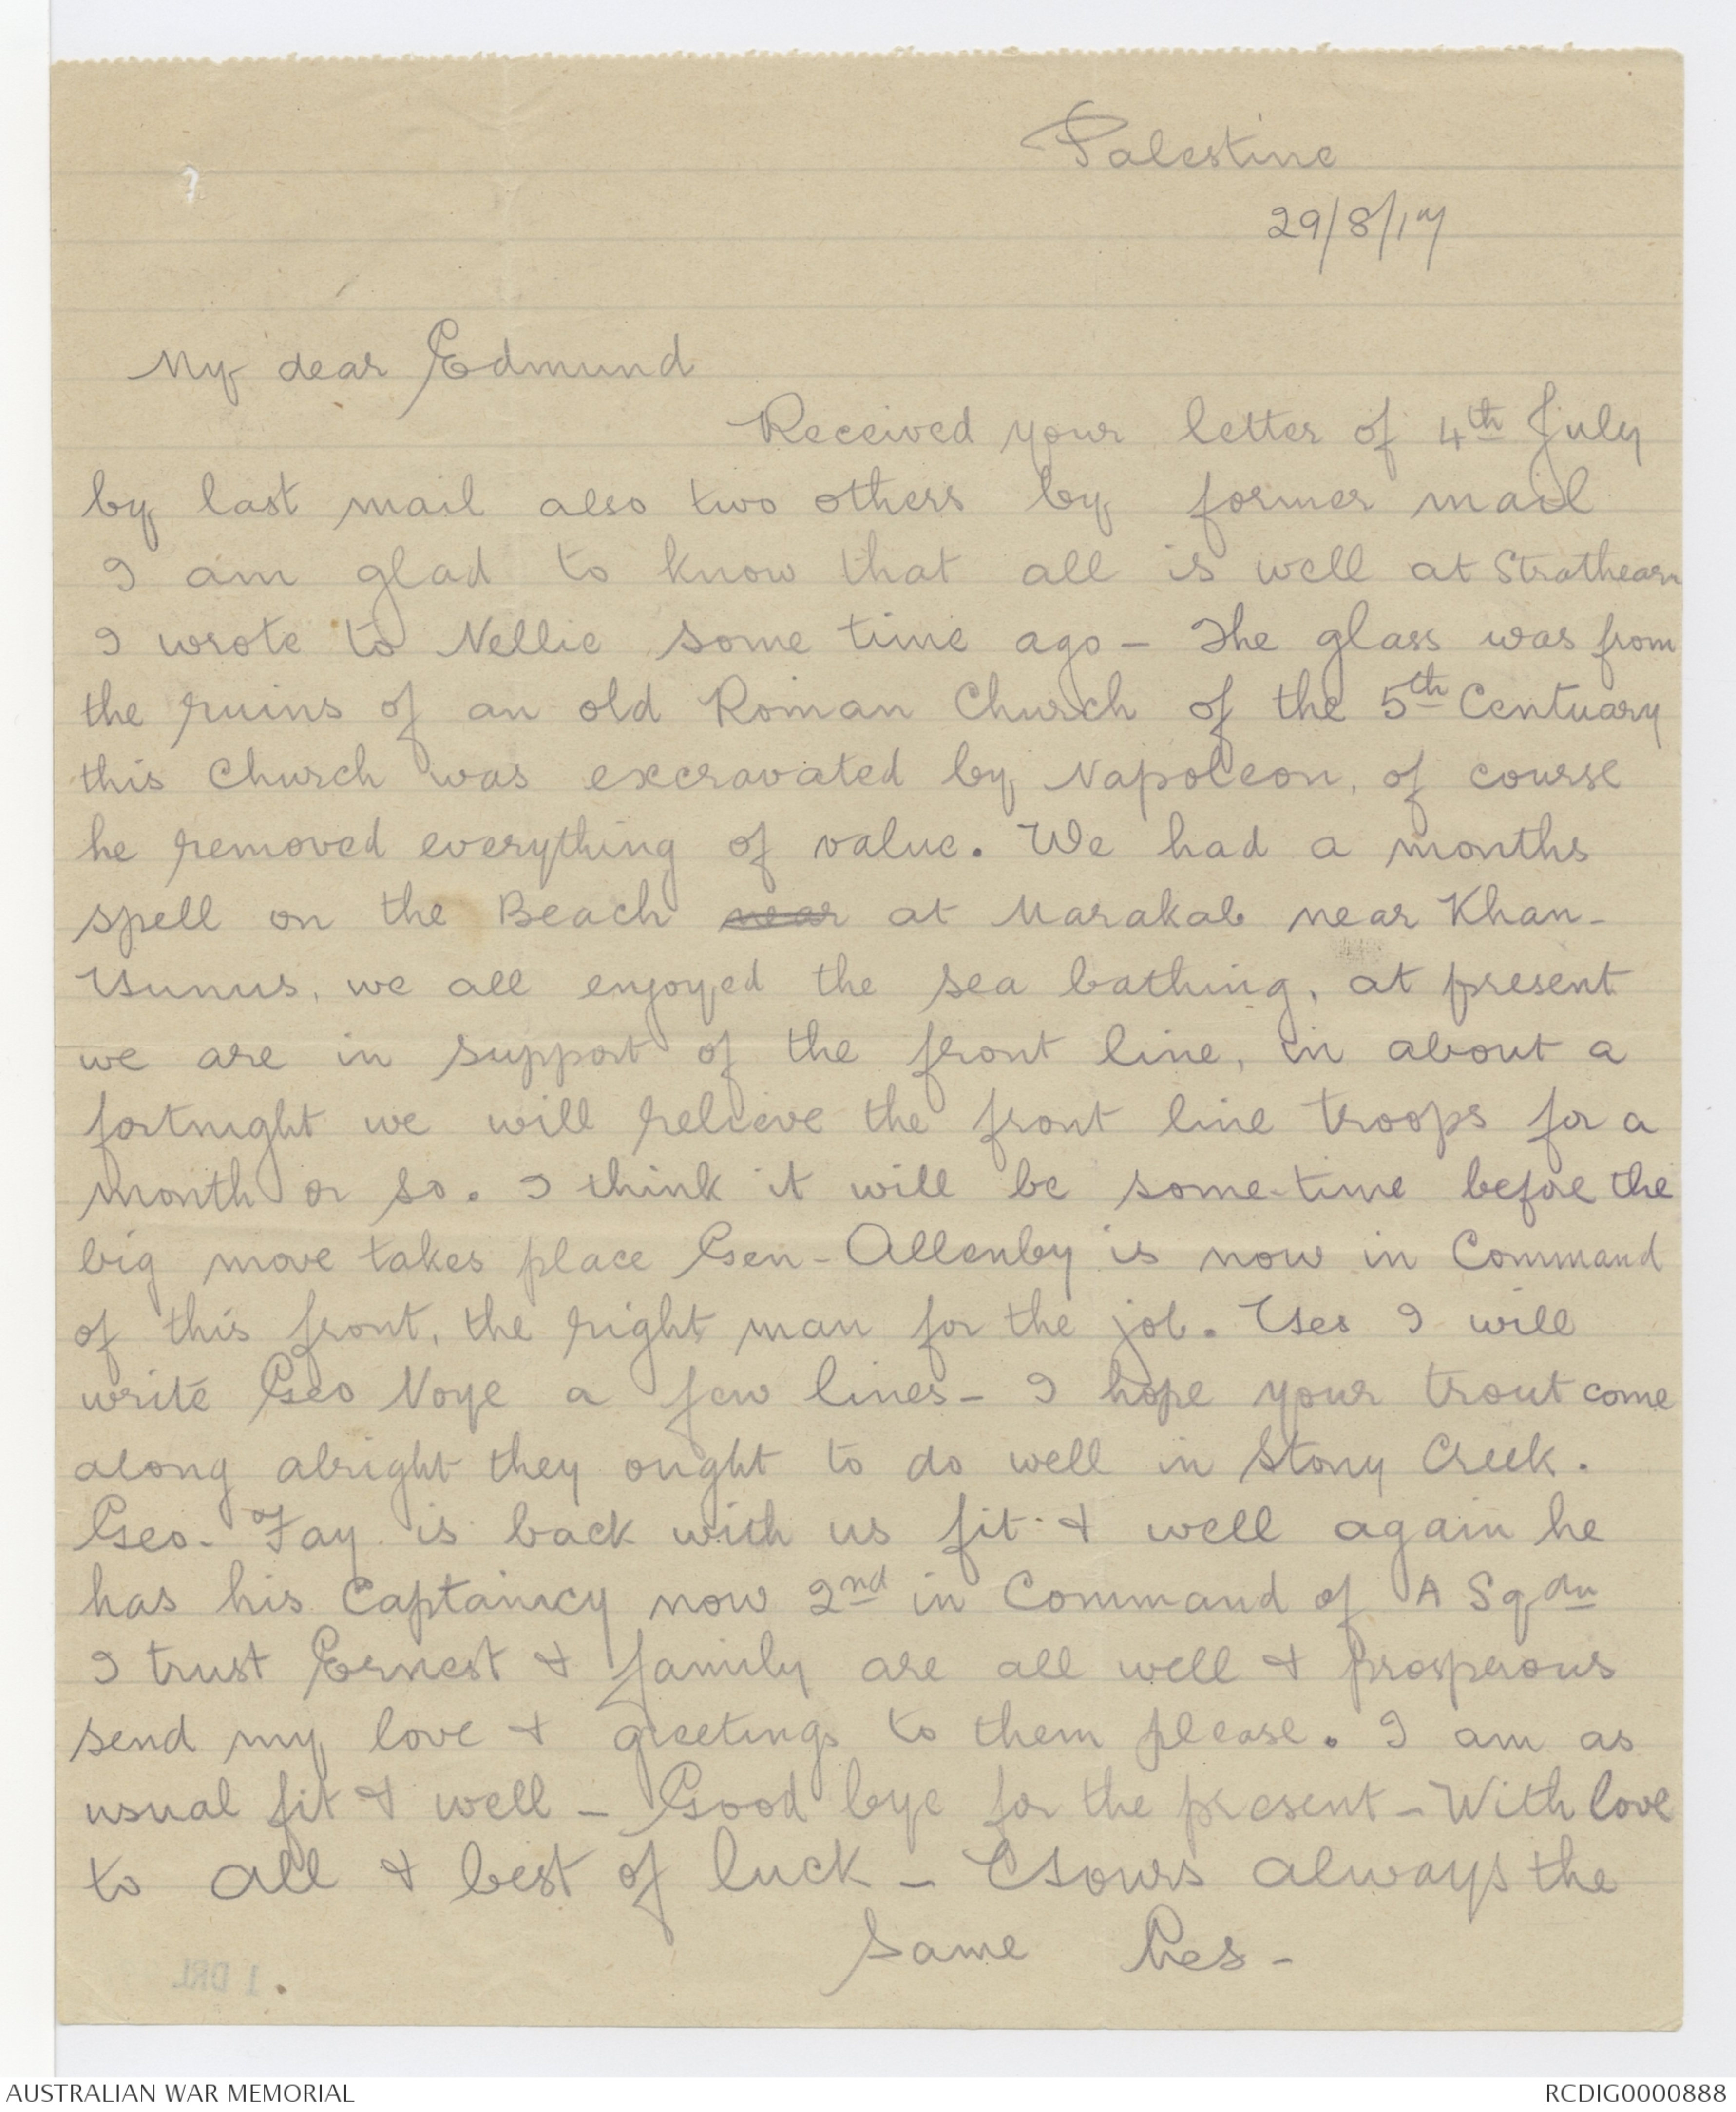 Palestine
29/8/17
My dear Edmund
Received your letter of 4th July
by last mail also two others by former mail
I am glad to know that all is well at Strathearn
I wrote to Nellie some time ago - The glass was from
the ruins of an old Roman Church of the 5th Centuary
this Church was excravated by Napoleon, of course
he removed everything of value. We had a months
spell on the Beach near at Marakab near Khan-
Yunus, we all enjoyed the sea bathing, at present
we are in support of the front line, in about a
fortnight we will relieve the front line troops for a
month or so. I think it will be some-time before the
big move takes place Gen- Allenby is now in Command
of this front, the right man for the job. Yes I will
write Geo Noye a few lines - I hope your trout come
along alright they ought to do well in Stony Creek.
Geo. Fay is back with us fit & well again he
has his Captaincy now 2nd in Command of A Sqdn
I trust Ernest & family are all well & prosperous
send my love & greetings to them please. I am as
usual fit & well - Good bye for the present - With love
to all & best of luck - Yours always the
same
1 DRL
AUSTRALIAN WAR MEMORIAL
RCDIG0000888